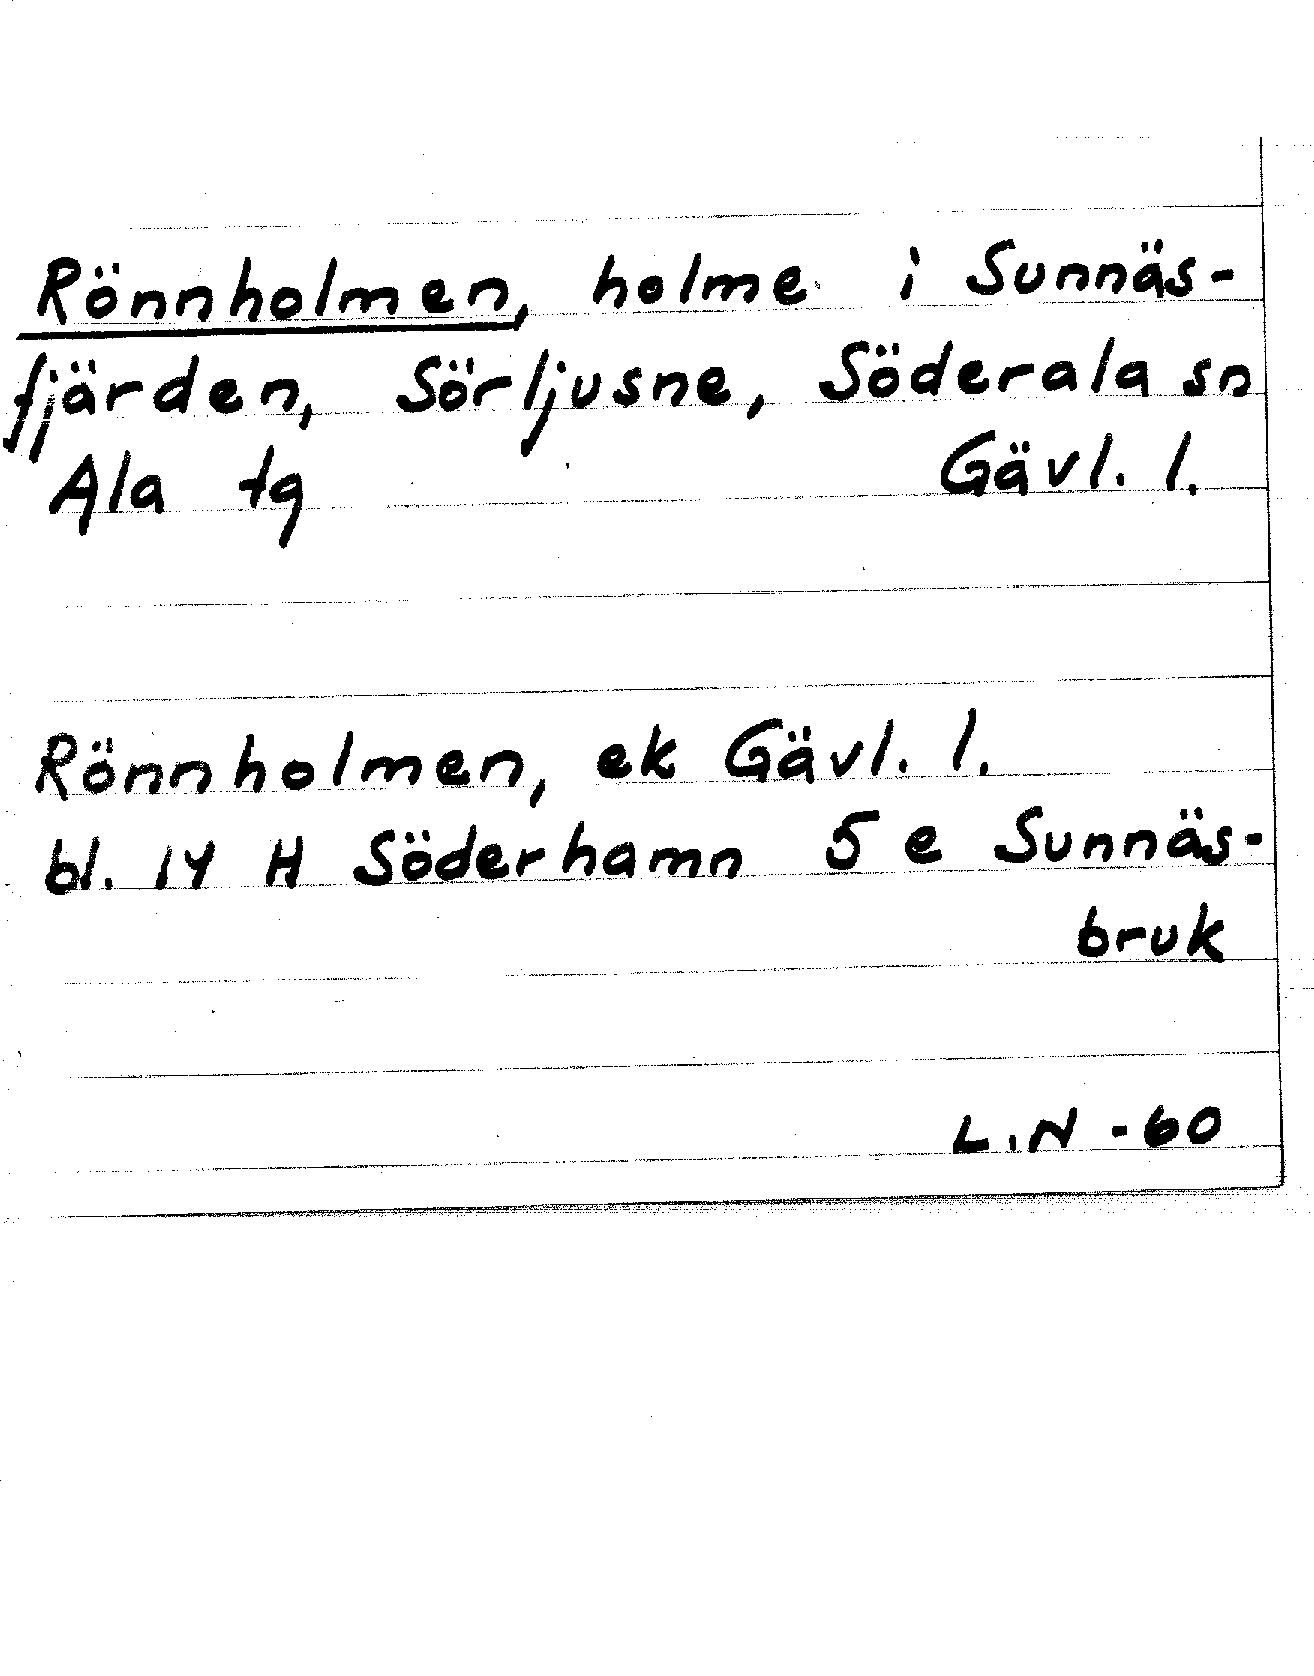 Rönnholmen, holme i Sunnäs-
fjärden, Sörljusne, Söderala sn
Ala tg Gävl. l.
Rönnholmen, ek Gävl. l.
bl. 14 H Söderhamn 5 e Sunnäs-
bruk
L.N -60